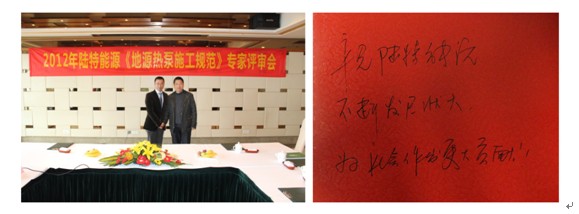 2012年陆特能源《地源热泵施工规范》专家评审会
陆特能源
不断发展壮大
为社会作出更大贡献